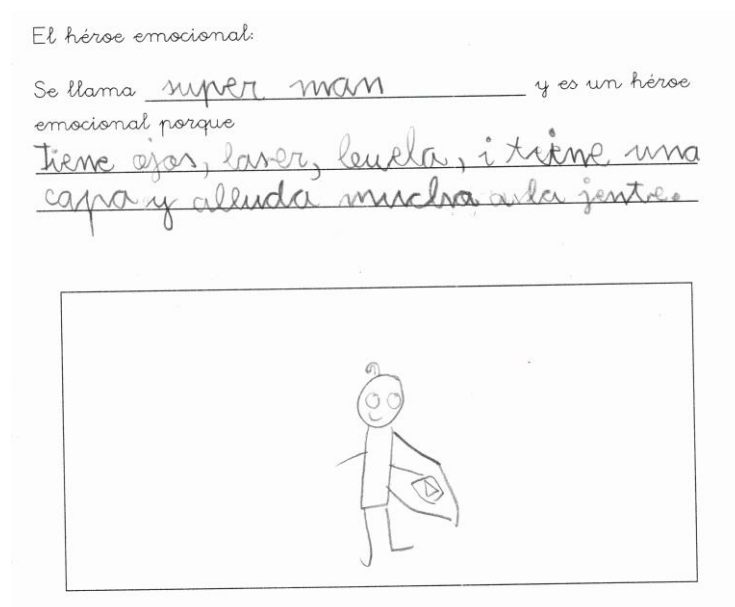 El héroe emocional:
Se llama super man y es un héroe
emocional porque
tiene ojos, laser, leuela, i tiene una
capa y alluda mucho a la jente.